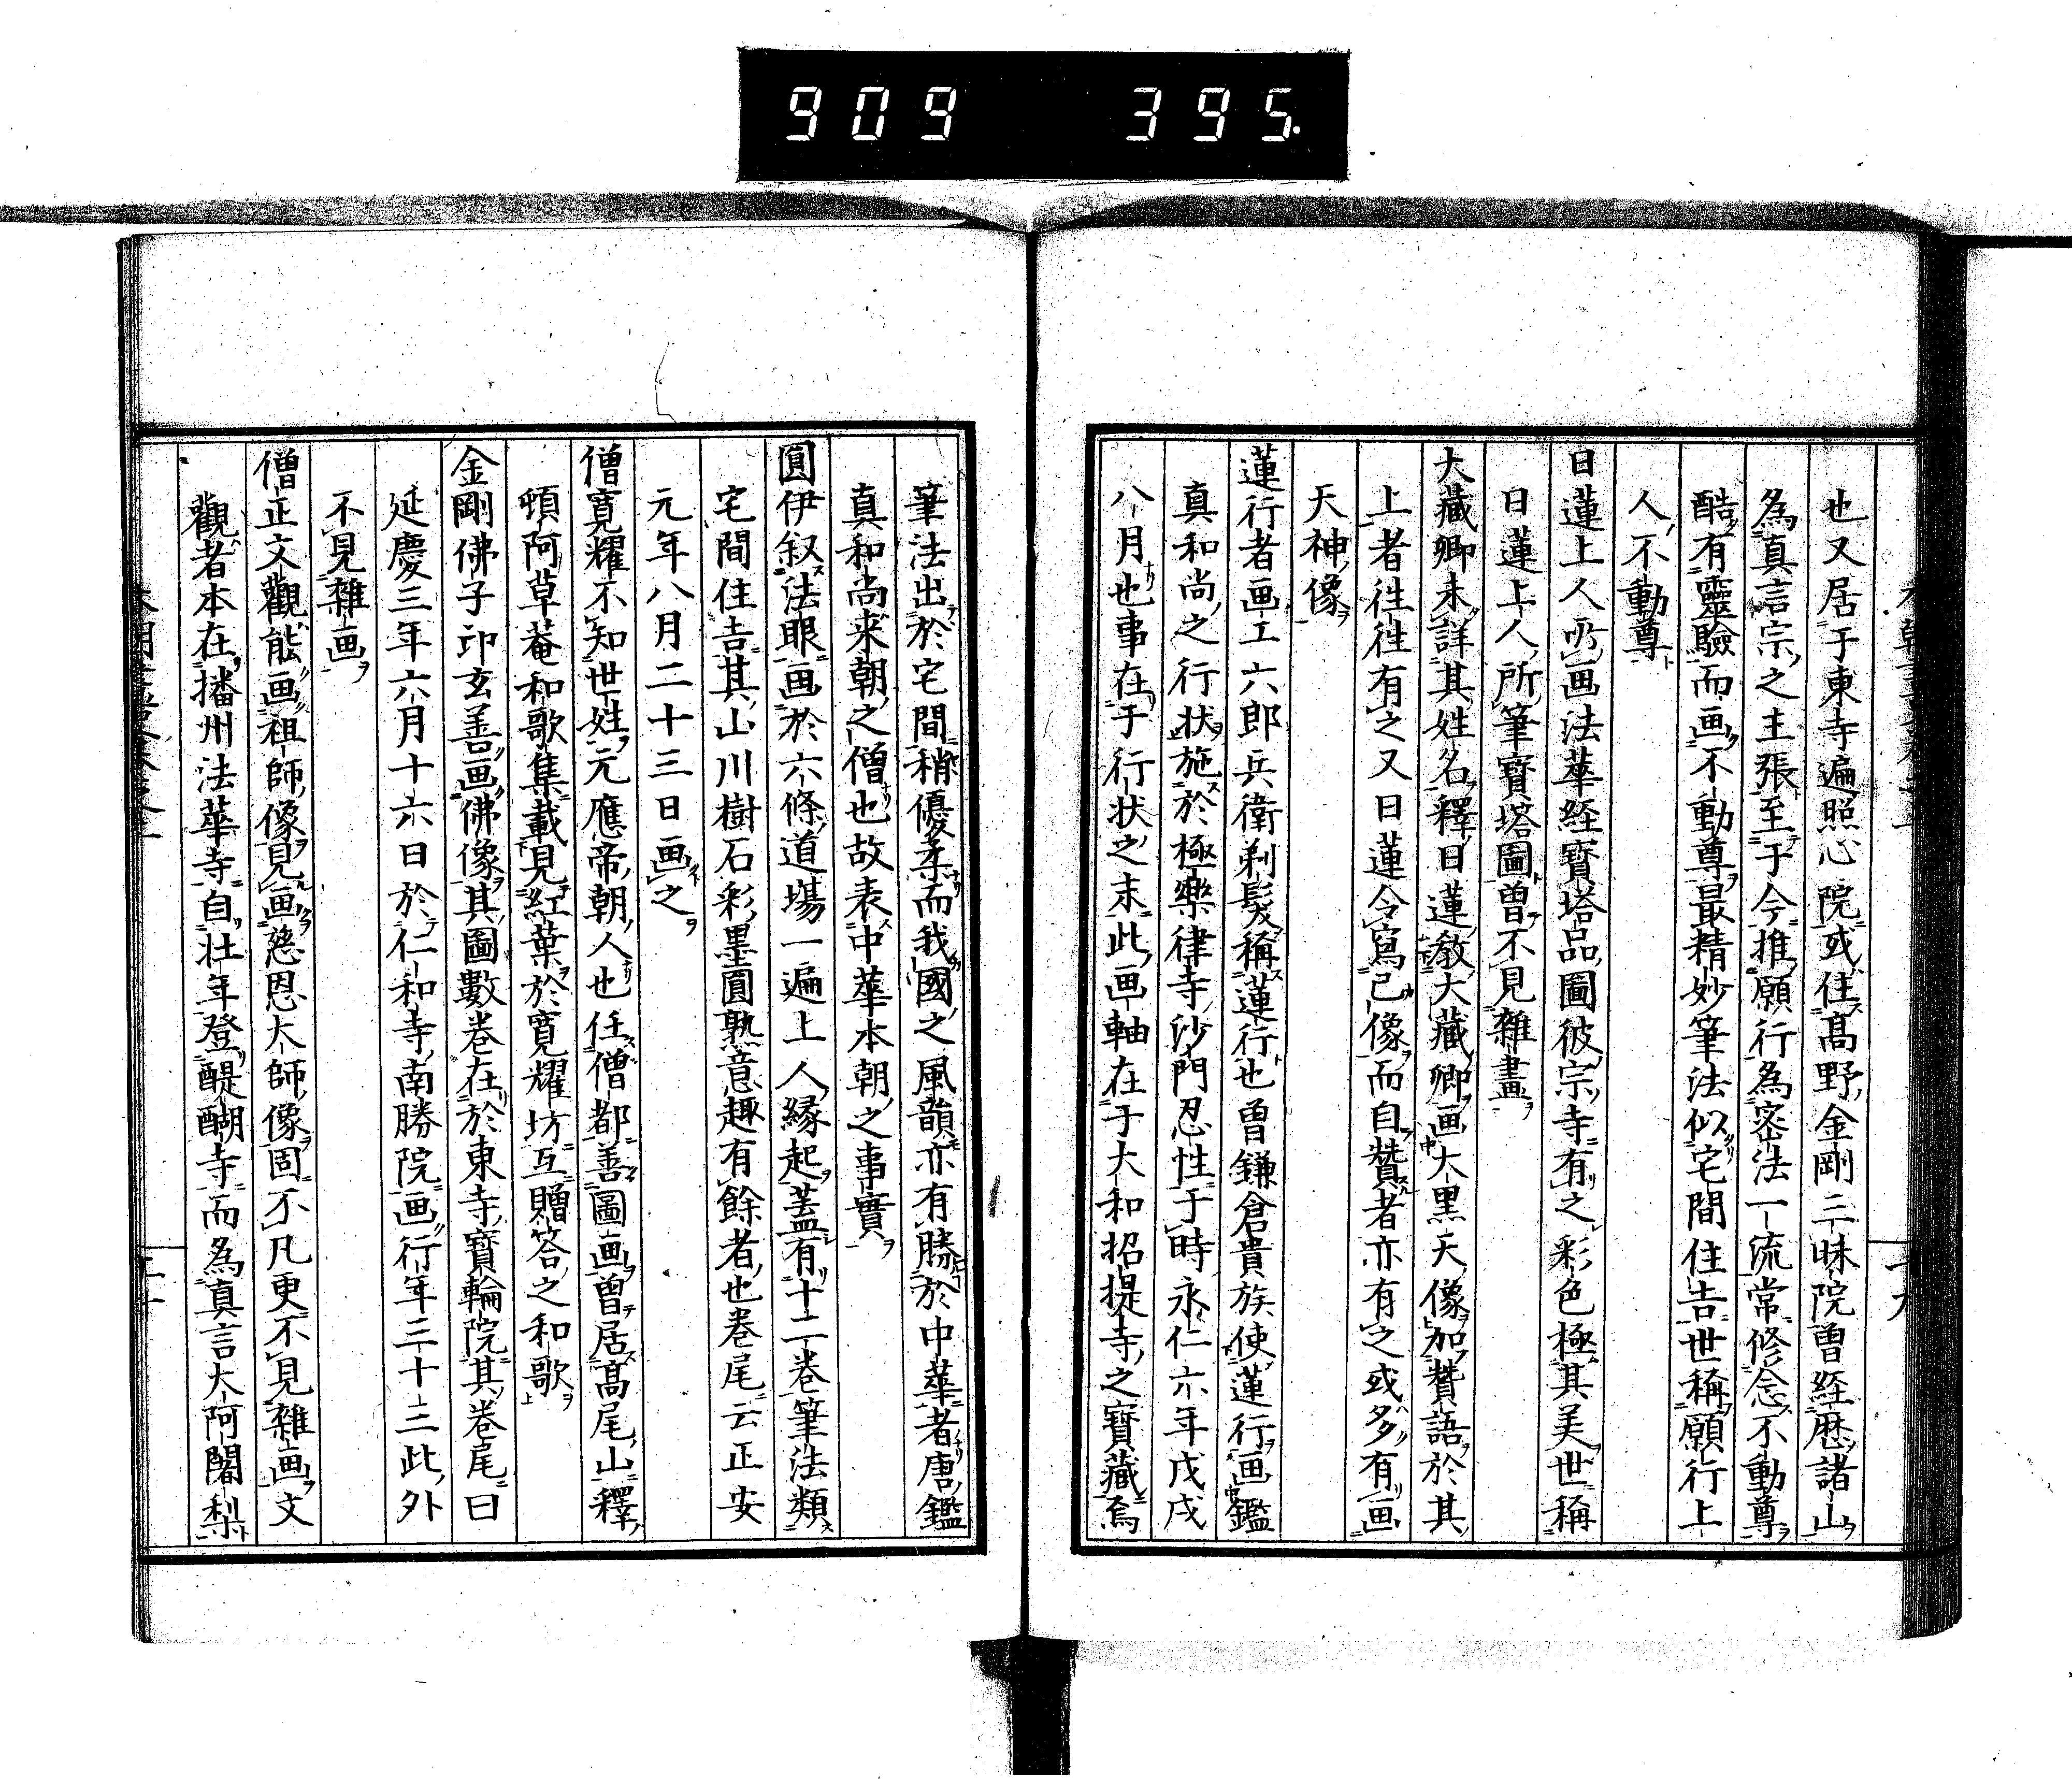 909 395.
也又居于東寺遍照心院或住高野金剛三昧院曽経歴諸山
為真言宗之主張至于今推願行為密法一流常修念不動尊
酷有靈驗而画不動尊最精妙筆法似宅間住吉世稱願行上
人不動尊
日蓮上人所画法華経寳塔品圖彼宗寺有之彩色極其美世稱
日蓮上人所筆寳塔圖曽不見雜畫
大藏卿未詳其姓名釋日蓮教大藏卿画大黒天像加賛語於其
上者往往有之又日蓮令寫己像而自賛者亦有之或多有画
天神像
蓮行者画工六郎兵衛剃髪稱蓮行也曽鎌倉貴族使蓮行画鑑
真和尚之行状施於極樂律寺沙門忍性于時永仁六年戊戌
八月也事在于行状之末此画軸在于大和招提寺之寳藏焉
筆法出於宅間稍優柔而我國之風韻亦有勝於中華者唐鑑
真和尚来朝之僧也故表中華本朝之事實
圓伊叙法眼画於六條道場一遍上人縁起蓋有十二巻筆法類
宅間住吉其山川樹石彩墨圓熟意趣有餘者也巻尾云正安
元年八月二十三日画之
僧寛耀不知世姓元應帝朝人也任僧都善圖画曽居高尾山釋
頓阿草菴和歌集載見紅葉於寛耀坊互贈答之和歌
金剛佛子印玄善画佛像其圖數巻在於東寺寳輪院其巻尾曰
延慶三年六月十六日於仁和寺南勝院画行年三十三此外
不見雜画
僧正文觀能画祖師像見画慈恩大師像固不凡更不見雜画文
觀者本在播州法華寺自壮年登醍醐寺而為真言大阿闍梨